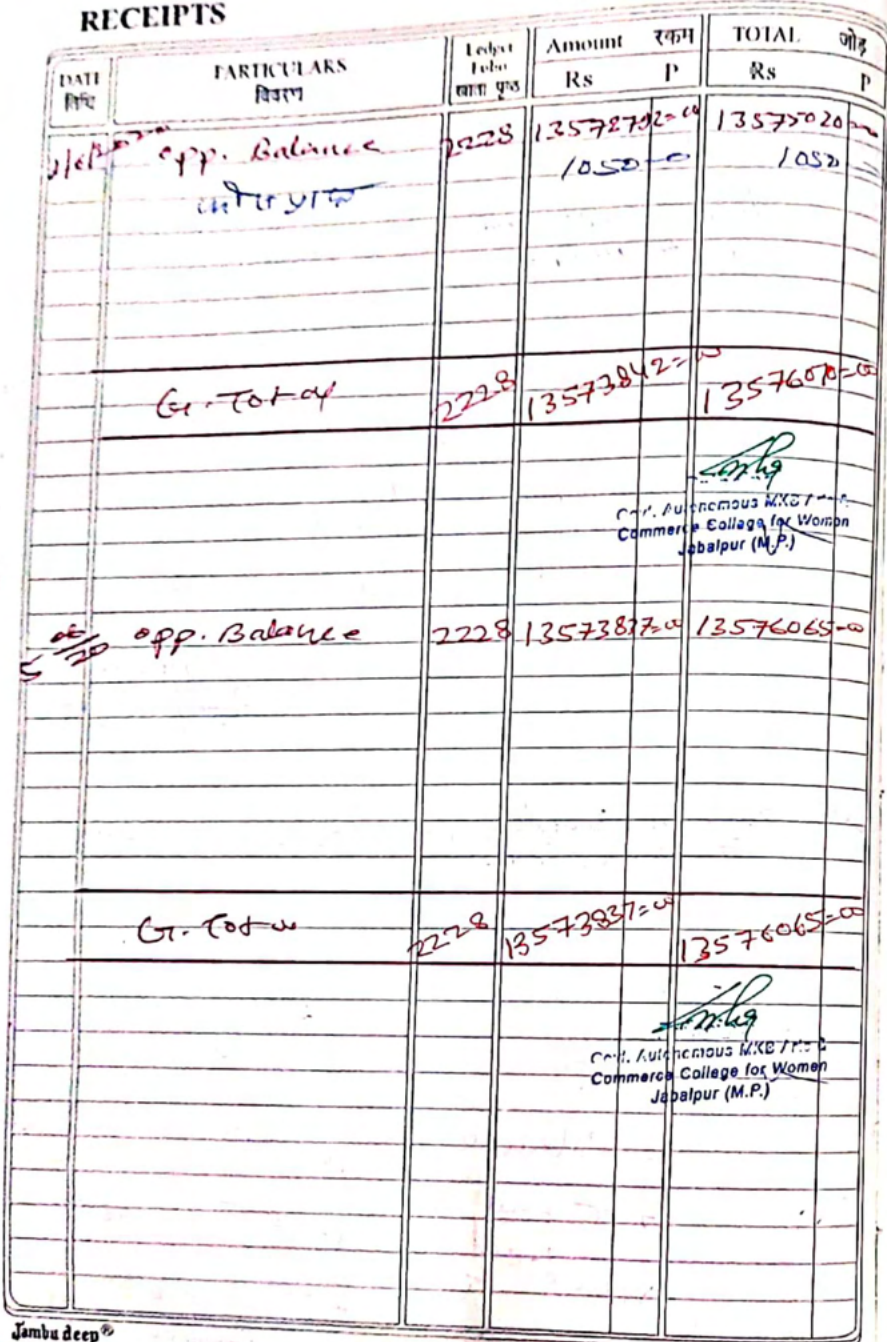 RECEIPTS
DATE PARTICULARS Ledger Folio Amount रकम TOTAL जोड़
तिथि विवरण खाता पृष्ठ Rs P Rs P
opp. Balance 2228 13572792=00 13575020=00
1050=0 1050=
G. Total 2228 13573842=00 13576070=00
Autonomous
Commerce College for Women
Jabalpur (M.P.)
5 06/20 opp. Balance 2228 13573837=00 13576065=00
G. Total 2228 13573837=00 13576065=00
Autonomous
Commerce College for Women
Jabalpur (M.P.)
Jambu deep®